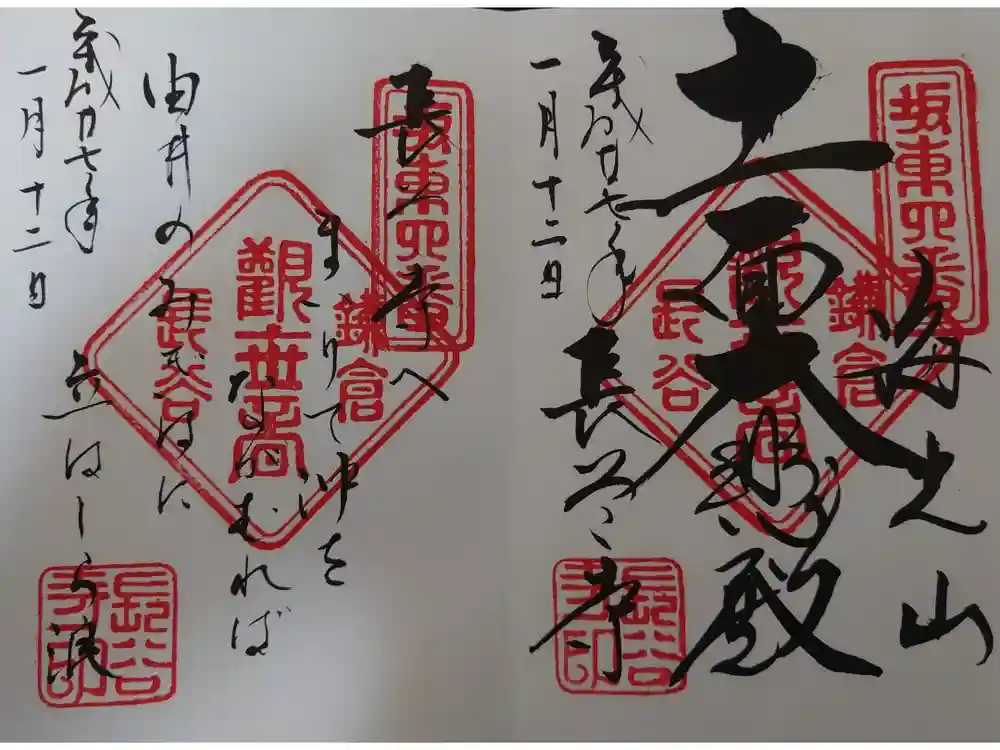 坂東四番
海光山
十一面大悲殿
鎌倉
觀世音
長谷
長谷寺
長谷寺印
平成廿七年
一月十二日
坂東四番
長谷寺へ
まいりて沖を
ながむれば
鎌倉
觀世音
長谷
由井のみぎはに
立はしら浪
平成廿七年
一月十二日
長谷寺印